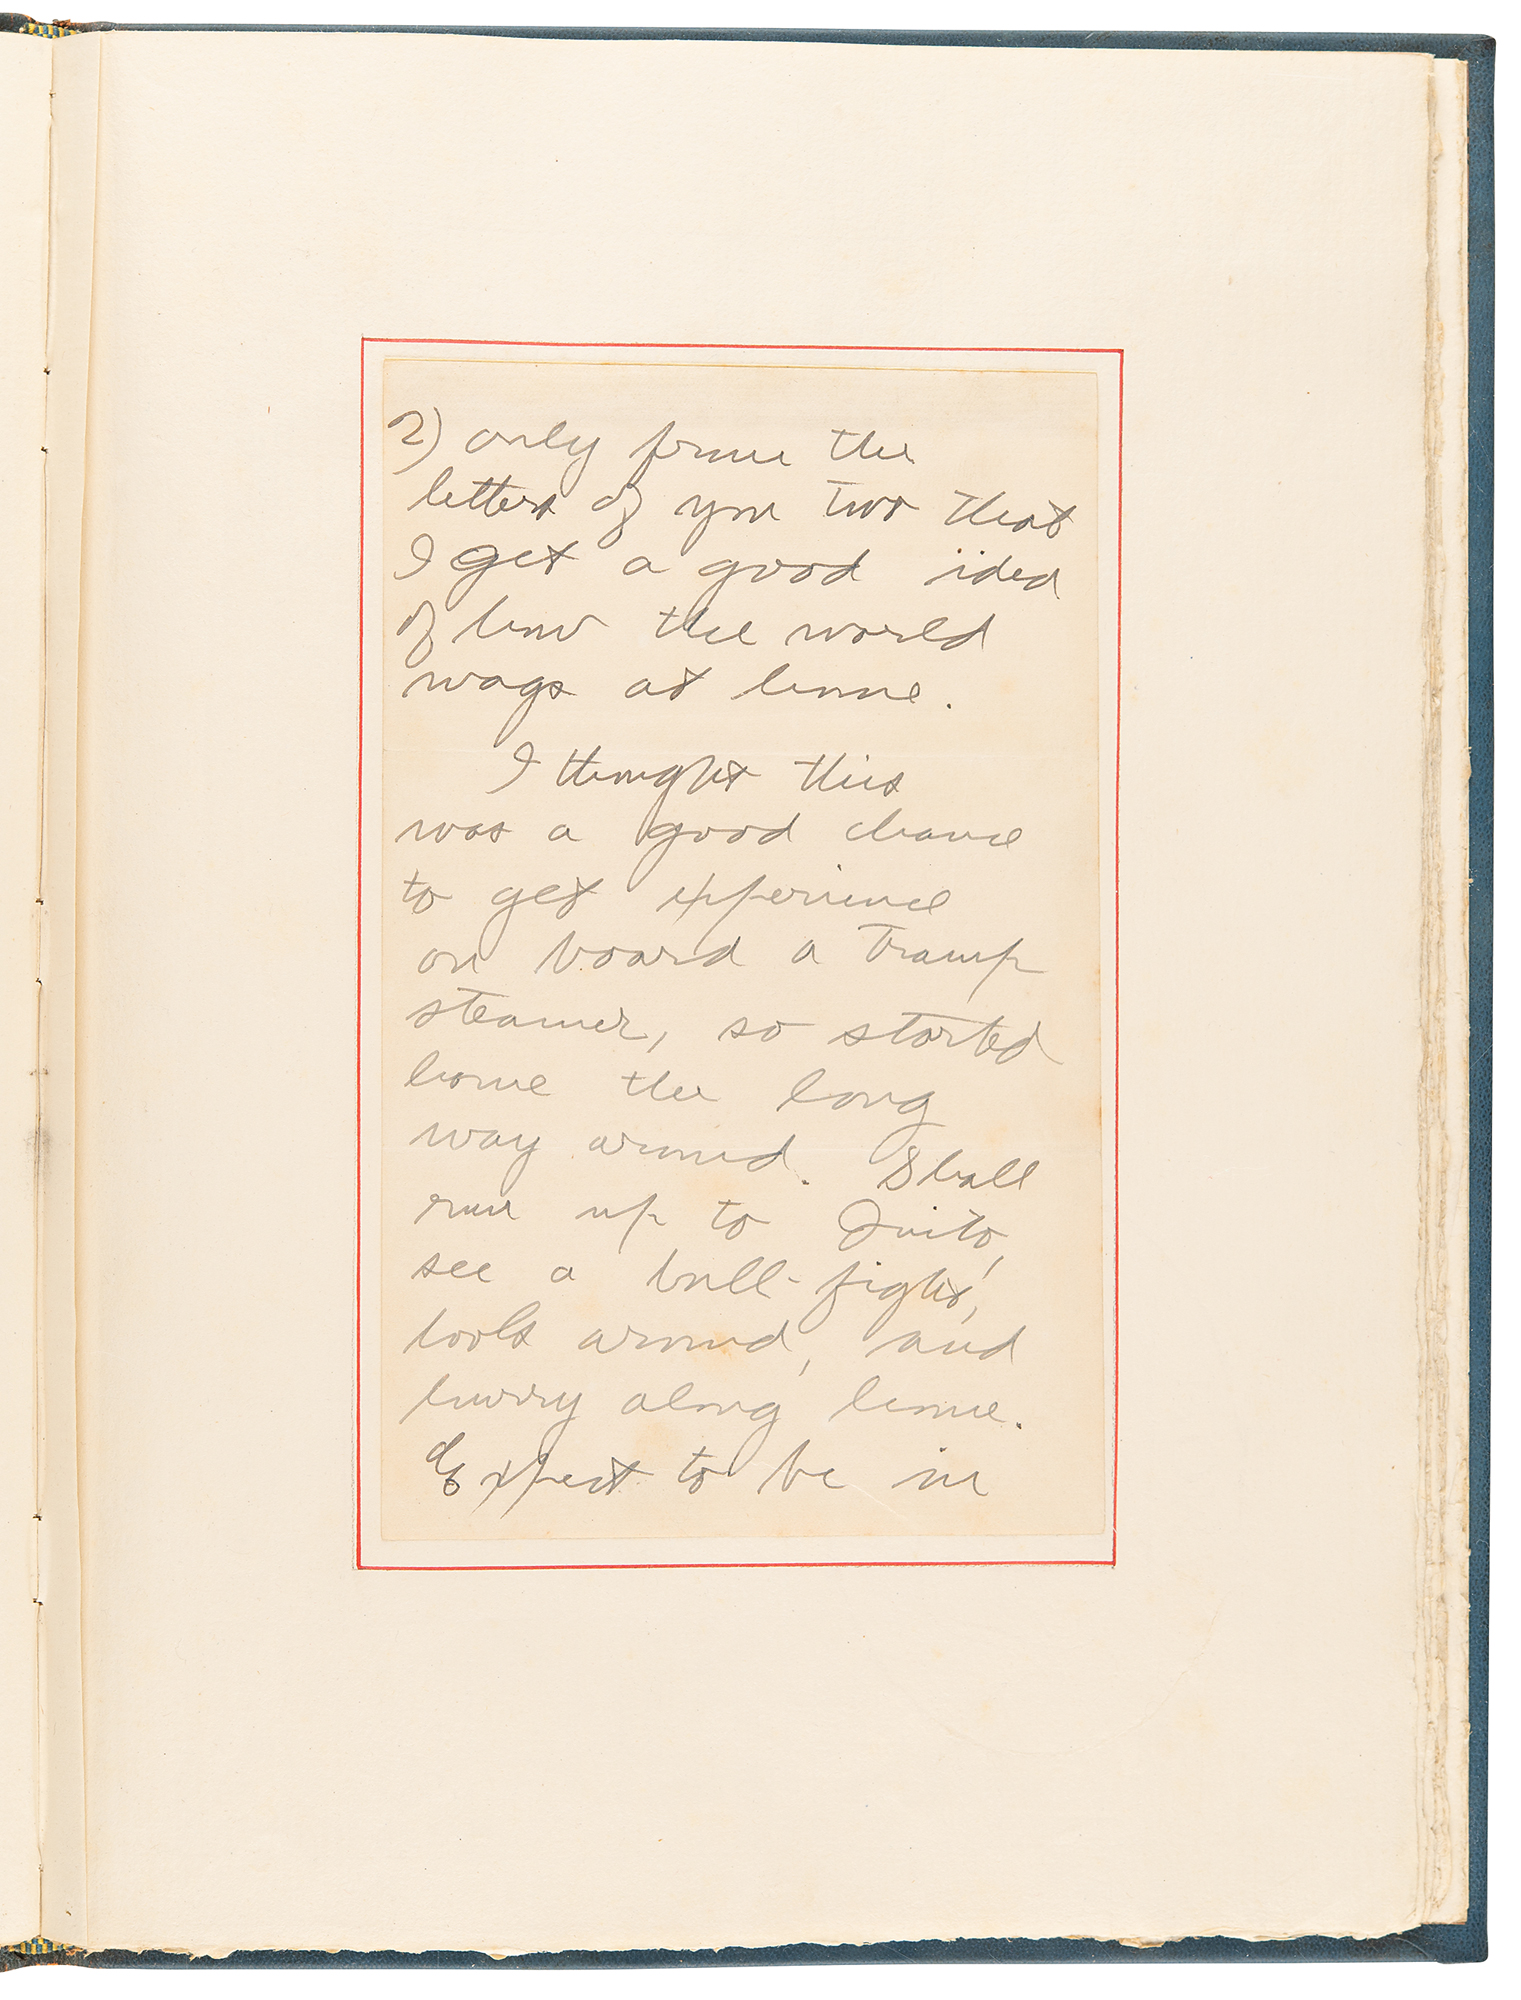 2) only from the
letters of you two that
I get a good idea
of how the world
wags at home.
I thought this
was a good chance
to get experience
on board a tramp
steamer, so started
home the long
way around. Shall
run up to Quito,
see a bull-fight,
look around, and
hurry along home.
Expect to be in